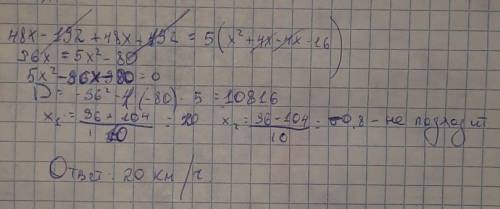 48x - 192 + 48x + 192 = 5(x² + 4x - 4x - 16)
96x = 5x² - 80
5x² - 96x - 80 = 0
D = -96² - 4(-80) · 5 = 10816
x₁ = (96 + 104)/10 = 20 x₂ = (96 - 104)/10 = -0,8 - не подходит
Ответ: 20 км/ч